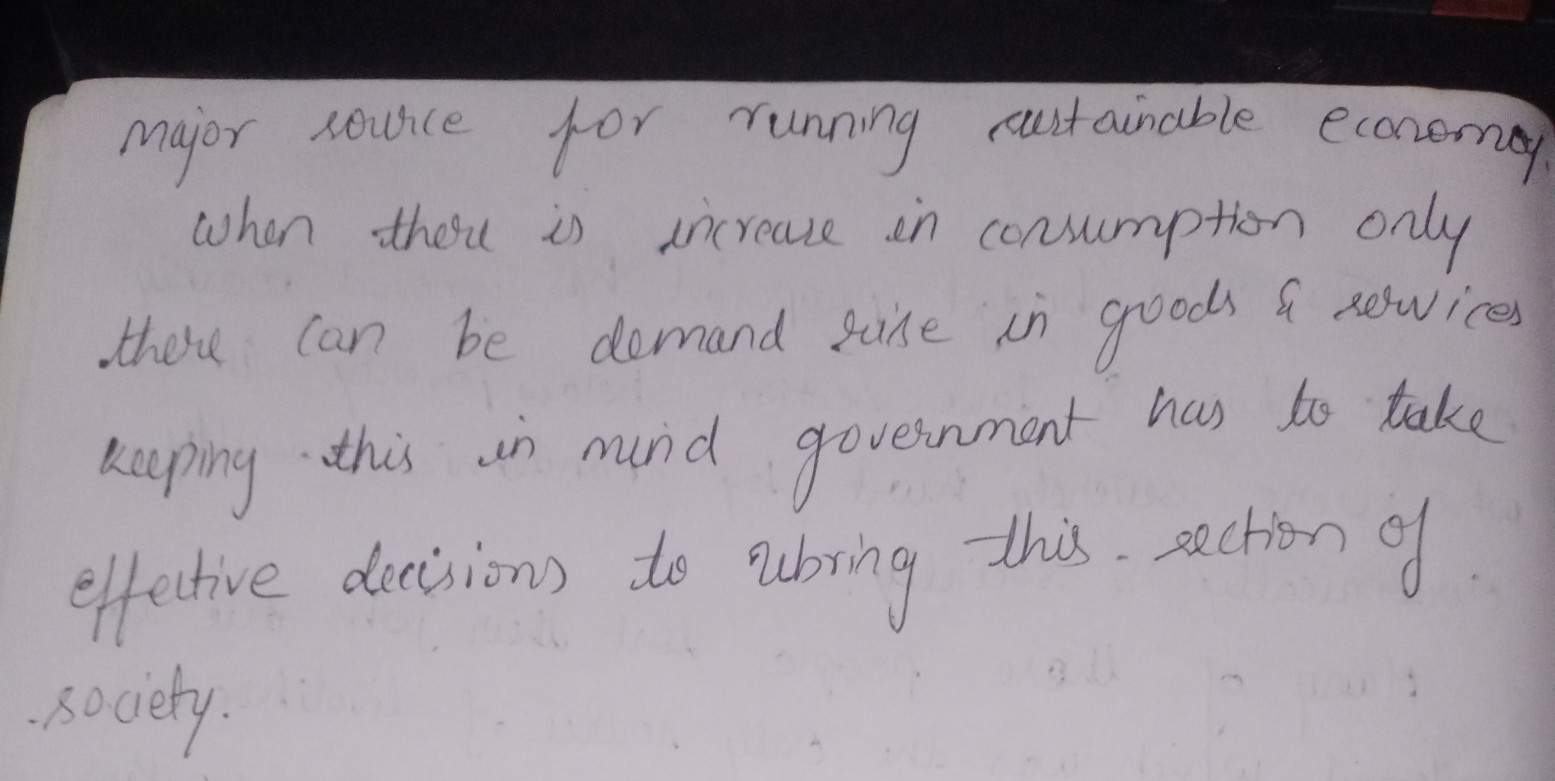 major source for running sustainable economy.
when there is increase in consumption only
there can be demand raise in goods & services
keeping this in mind government has to take
effective decisions to rebring this section of
society.